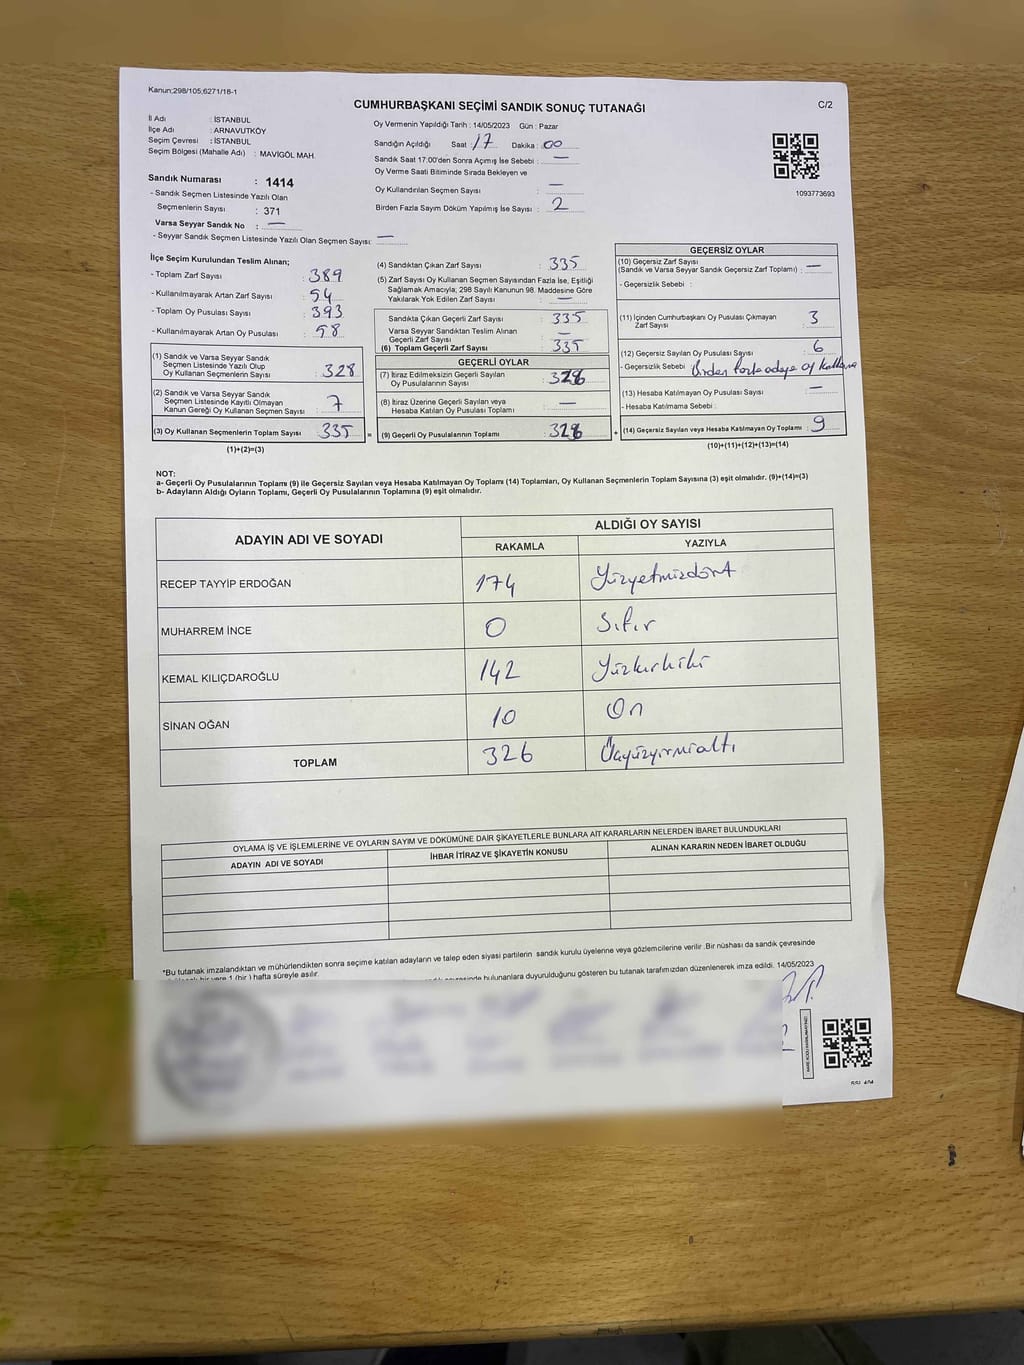 Kanun;298/105;6271/18-1
C/2
CUMHURBAŞKANI SEÇİMİ SANDIK SONUÇ TUTANAĞI
İl Adı : İSTANBUL
İlçe Adı : ARNAVUTKÖY
Seçim Çevresi : İSTANBUL
Seçim Bölgesi (Mahalle Adı) : MAVİGÖL MAH.
Sandık Numarası : 1414
- Sandık Seçmen Listesinde Yazılı Olan
Seçmenlerin Sayısı : 371
Varsa Seyyar Sandık No : —
- Seyyar Sandık Seçmen Listesinde Yazılı Olan Seçmen Sayısı: —
Oy Vermenin Yapıldığı Tarih : 14/05/2023 Gün : Pazar
Sandığın Açıldığı Saat : 17 Dakika : 00
Sandık Saat 17:00'den Sonra Açımış İse Sebebi : —
Oy Verme Saati Bitiminde Sırada Bekleyen ve
Oy Kullandırılan Seçmen Sayısı : —
Birden Fazla Sayım Döküm Yapılmış İse Sayısı : 2
1093773693
İlçe Seçim Kurulundan Teslim Alınan;
- Toplam Zarf Sayısı : 389
- Kullanılmayarak Artan Zarf Sayısı : 54
- Toplam Oy Pusulası Sayısı : 393
- Kullanılmayarak Artan Oy Pusulası : 58
(1) Sandık ve Varsa Seyyar Sandık
Seçmen Listesinde Yazılı Olup
Oy Kullanan Seçmenlerin Sayısı : 328
(2) Sandık ve Varsa Seyyar Sandık
Seçmen Listesinde Kayıtlı Olmayan
Kanun Gereği Oy Kullanan Seçmen Sayısı : 7
(3) Oy Kullanan Seçmenlerin Toplam Sayısı : 335
(1)+(2)=(3)
(4) Sandıktan Çıkan Zarf Sayısı : 335
(5) Zarf Sayısı Oy Kullanan Seçmen Sayısından Fazla İse, Eşitliği
Sağlamak Amacıyla; 298 Sayılı Kanunun 98. Maddesine Göre
Yakılarak Yok Edilen Zarf Sayısı : —
Sandıkta Çıkan Geçerli Zarf Sayısı : 335
Varsa Seyyar Sandıktan Teslim Alınan
Geçerli Zarf Sayısı : —
(6) Toplam Geçerli Zarf Sayısı : 335
GEÇERLİ OYLAR
(7) İtiraz Edilmeksizin Geçerli Sayılan
Oy Pusulalarının Sayısı : 326
(8) İtiraz Üzerine Geçerli Sayılan veya
Hesaba Katılan Oy Pusulası Toplamı : —
= (9) Geçerli Oy Pusulalarının Toplamı : 326
GEÇERSİZ OYLAR
(10) Geçersiz Zarf Sayısı
(Sandık ve Varsa Seyyar Sandık Geçersiz Zarf Toplamı) : —
- Geçersizlik Sebebi :
(11) İçinden Cumhurbaşkanı Oy Pusulası Çıkmayan
Zarf Sayısı : 3
(12) Geçersiz Sayılan Oy Pusulası Sayısı : 6
- Geçersizlik Sebebi : Birden fazla adaya oy kullanma
(13) Hesaba Katılmayan Oy Pusulası Sayısı : —
- Hesaba Katılmama Sebebi :
+ (14) Geçersiz Sayılan veya Hesaba Katılmayan Oy Toplamı : 9
(10)+(11)+(12)+(13)=(14)
NOT:
a- Geçerli Oy Pusulalarının Toplamı (9) ile Geçersiz Sayılan veya Hesaba Katılmayan Oy Toplamı (14) Toplamları, Oy Kullanan Seçmenlerin Toplam Sayısına (3) eşit olmalıdır. (9)+(14)=(3)
b- Adayların Aldığı Oyların Toplamı, Geçerli Oy Pusulalarının Toplamına (9) eşit olmalıdır.
ADAYIN ADI VE SOYADI
ALDIĞI OY SAYISI
RAKAMLA YAZIYLA
RECEP TAYYİP ERDOĞAN 174 Yüzyetmişdört
MUHARREM İNCE 0 Sıfır
KEMAL KILIÇDAROĞLU 142 Yüzkırkiki
SİNAN OĞAN 10 On
TOPLAM 326 Üçyüzyirmialtı
OYLAMA İŞ VE İŞLEMLERİNE VE OYLARIN SAYIM VE DÖKÜMÜNE DAİR ŞİKAYETLERLE BUNLARA AİT KARARLARIN NELERDEN İBARET BULUNDUKLARI
ADAYIN ADI VE SOYADI İHBAR İTİRAZ VE ŞİKAYETİN KONUSU ALINAN KARARIN NEDEN İBARET OLDUĞU
*Bu tutanak imzalandıktan ve mühürlendikten sonra seçime katılan adayların ve talep eden siyasi partilerin sandık kurulu üyelerine veya gözlemcilerine verilir .Bir nüshası da sandık çevresinde
bir yere 1 (bir ) hafta süreyle asılır.
bulunanlara duyurulduğunu gösteren bu tutanak tarafımızdan düzenlenerek imza edildi. 14/05/2023